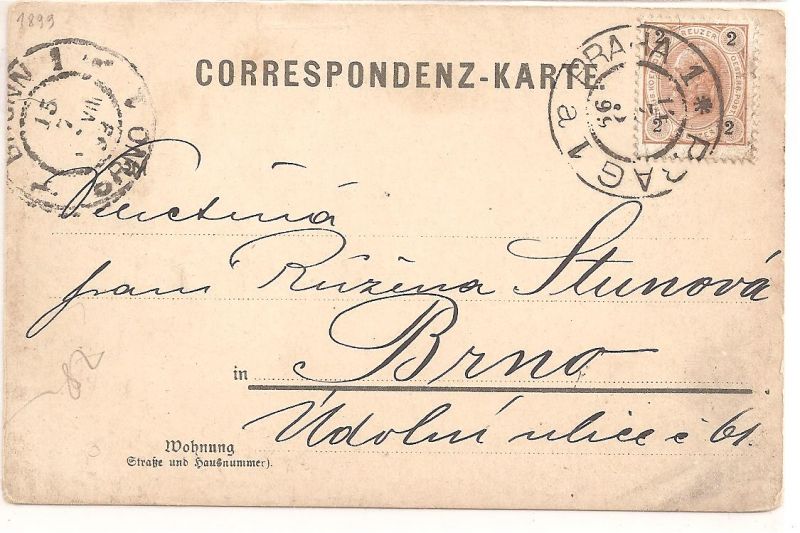 1899
CORRESPONDENZ-KARTE.
PRAHA 1 * PRAG 1 a
BRÜNN 1 BRNO
15
2 KREUZER 2
2 2
Velectěná
paní Růžena Stunová
in Brno
Údolní ulice č 61.
82
Wohnung
(Straße und Hausnummer).